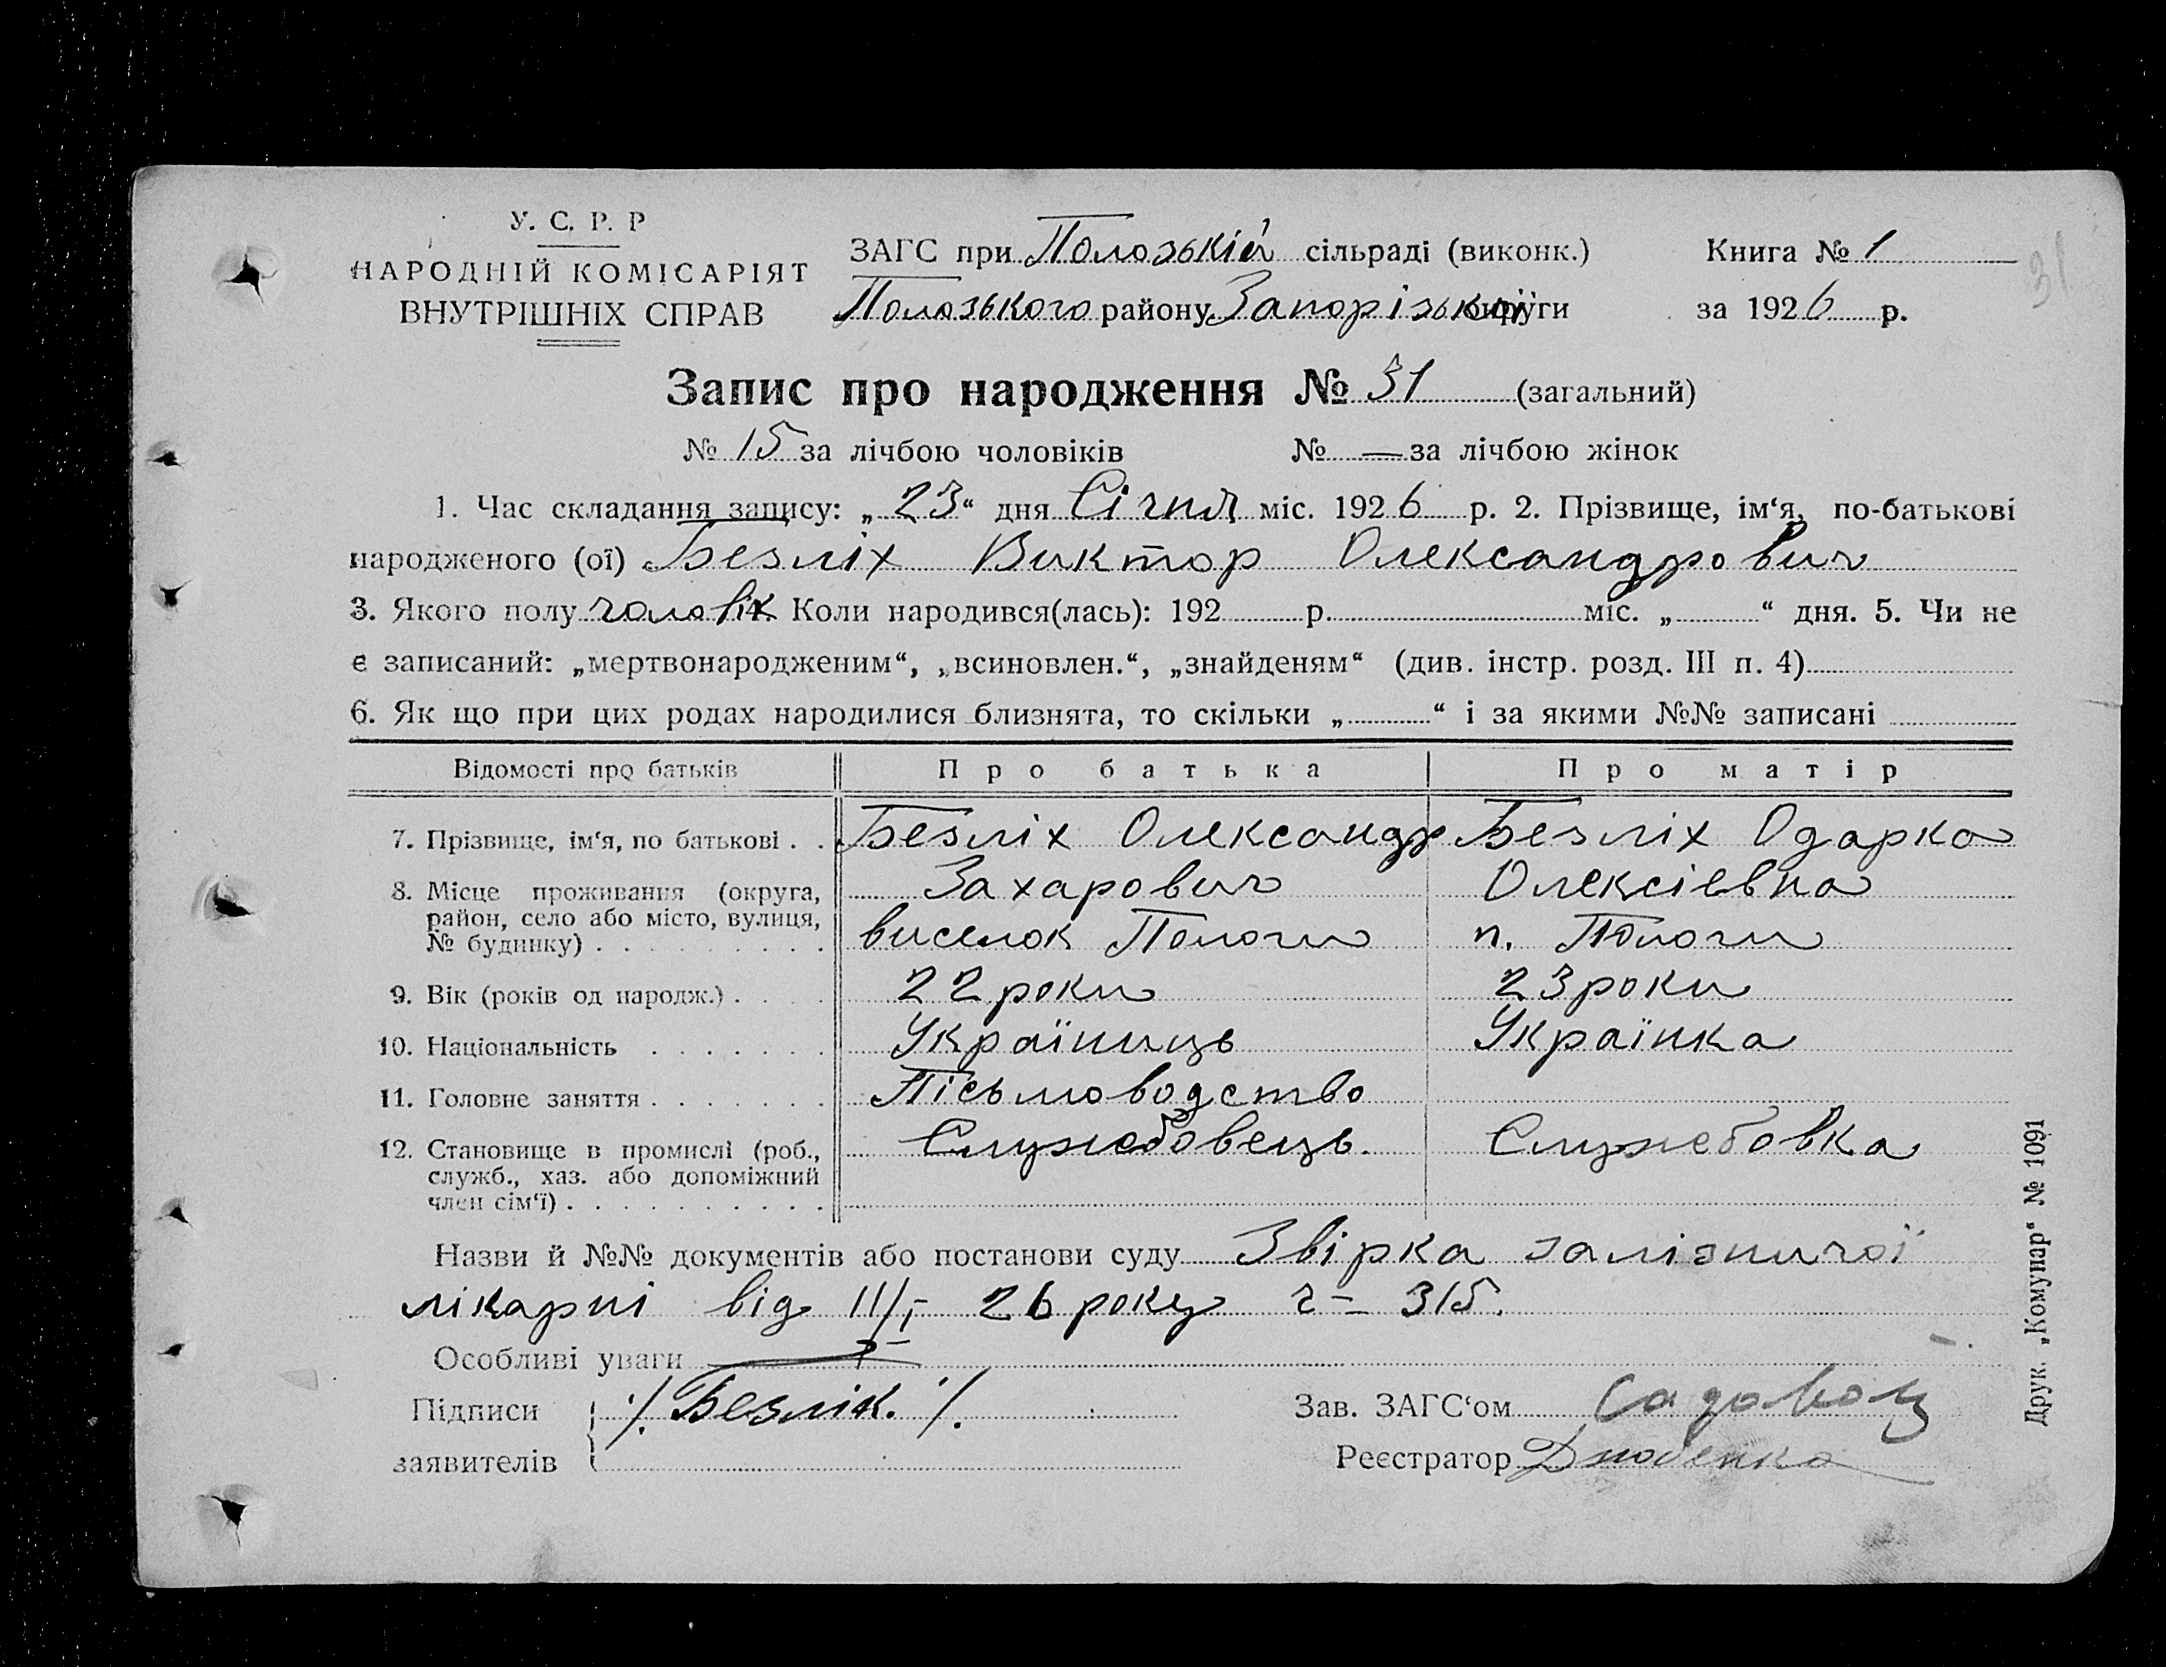 У. С. Р. Р
НАРОДНІЙ КОМІСАРІЯТ
ВНУТРІШНІХ СПРАВ
ЗАГС при Пологзькій сільраді (виконк.)
Пологзького району Запорізької округи
Книга № 1
за 1926 р.
31
Запис про народження № 31 (загальний)
№ 15 за лічбою чоловіків № — за лічбою жінок
1. Час складання запису: „23“ дня Січня міс. 1926 р. 2. Прізвище, ім‘я, по-батькові
народженого (ої) Безліх Виктор Олександрович
3. Якого полу чоловік 4. Коли народився(лась): 192 р. міс. „ “ дня. 5. Чи не
є записаний: „мертвонародженим“, „всиновлен.“, „знайденям“ (див. інстр. розд. III п. 4)
6. Як що при цих родах народилися близнята, то скільки „ “ і за якими №№ записані
Відомості про батьків Про батька Про матір
7. Прізвище, ім‘я, по батькові . . Безліх Олександр Безліх Одарка
Захарович Олексіевна
8. Місце проживання (округа,
район, село або місто, вулиця,
№ будинку) . . . . . . . . . виселок Пологи п. Пологи
9. Вік (років од народж.) . . . . 22 роки 23 роки
10. Національність . . . . . . . Україниць Українка
11. Головне заняття . . . . . . . Пісьмоводство
12. Становище в промислі (роб.,
служб., хаз. або допоміжний
член сім‘ї) . . . . . . . . . . Служебовець. Служебовка
Назви й №№ документів або постанови суду Звірка залізничої
лікарні від 26 року ч— 315.
Особливі уваги
Підписи
заявителів
/. Безлік. /.
Зав. ЗАГС‘ом Садовой
Реєстратор
Друк. „Комунар“ № 1091